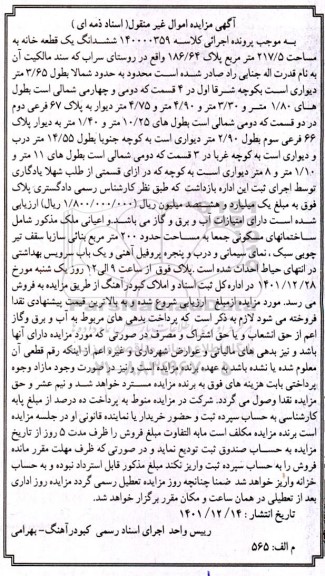 آگهی مزایده اموال غیر منقول( اسناد ذمه ای )
به موجب پرونده اجرائی کلاسه ۱۴۰۰۰۰۳۵۹ ششدانگ یک قطعه خانه به
مساحت ۲۱۷/۵ متر مربع پلاک ۱۸۶/۶۴ واقع در روستای سراب که سند مالکیت آن
به نام قدرت اله جنابی راد صادر شده است محدود به حدود شمالا بطول ۳/۶۵ متر
دیواری است بکوچه شرقا اول در ۴ قسمت که دومی و چهارمی شمالی است بطول
های ۱/۸۰ متر و ۳/۳۰ متر و ۴/۹۰ متر و ۴/۷۵ متر دیوار به پلاک ۶۷ فرعی دوم
در دو قسمت که دومی شمالی است بطول های ۱۰/۲۵ متر و ۱/۴۰ متر به دیوار پلاک
۶۶ فرعی سوم بطول ۲/۹۰ متر دیواری است به کوچه جنوبا بطول ۱۴/۵۵ متر درب
و دیواری است به کوچه غربا در ۳ قسمت که دومی شمالی است بطول های ۱۱ متر و
۱/۱۰ متر و ۸ متر دیواری است به کوچه که در ازای قسمتی از طلب شهلا یادگاری
توسط اجرای ثبت این اداره بازداشت که طبق نظر کارشناس رسمی دادگستری پلاک
فوق به مبلغ یک میلیارد و هشتصد میلیون ریال (۱/۸۰۰/۰۰۰/۰۰۰ ریال) ارزیابی
شده است دارای امتیازات آب و برق و گاز می باشد و اعیانی ملک مذکور شامل
ساختمانهای مسکونی جمعا به مساحت حدود ۲۰۰ متر مربع بنائی سازبا سقف تیر
چوبی سبک ، نمای سیمانی و درب و پنجره پروفیل آهنی و یک باب سرویس بهداشتی
در انتهای حیاط احداث شده است. پلاک فوق از ساعت ۹ الی۱۲ روز یک شنبه مورخ
۱۴۰۱/۱۲/۲۸ در اداره کل ثبت اسناد و املاک کبودرآهنگ از طریق مزایده به فروش
می رسد. مورد مزایده ازمبلغ ارزیابی شروع شده و به بالاترین قیمت پیشنهادی نقدا
فروخته می شود لازم به ذکر است که پرداخت بدهی های مربوطه به آب و برق وگاز
اعم از حق انشعاب و یا حق اشتراک و مصرف در صورتی که مورد مزایده دارای آنها
باشد و نیز بدهی های مالیاتی و عوارض شهرداری و غیره اعم از اینکه رقم قطعی آن
معلوم شده یا نشده باشد به عهده برنده مزایده است و نیز در صورت وجود مازاد وجوه
پرداختی بابت هزینه های فوق به برنده مزایده مسترد خواهد شد و نیم عشر و حق
مزایده نقدا وصول می گردد. شرکت در مزایده منوط به پرداخت ده درصد از مبلغ پایه
کارشناسی به حساب سپرده ثبت و حضور خریدار یا نماینده قانونی او در جلسه مزایده
است برنده مزایده مکلف است مابه التفاوت مبلغ فروش را ظرف مدت ۵ روز از تاریخ
مزایده به حساب صندوق ثبت تودیع نماید و در صورتی که ظرف مهلت مقرر مانده
فروش را به حساب سپرده ثبت واریز نکند مبلغ مذکور قابل استرداد نبوده و به حساب
خزانه واریز خواهد شد ضمنا چنانچه روز مزایده تعطیل رسمی گردد مزایده روز اداری
بعد از تعطیلی در همان ساعت و مکان مقرر برگزار خواهد شد.
تاریخ انتشار : ۱۴۰۱/۱۲/۱۴
رییس واحد اجرای اسناد رسمی کبودرآهنگ- بهرامی
م الف: ۵۶۵